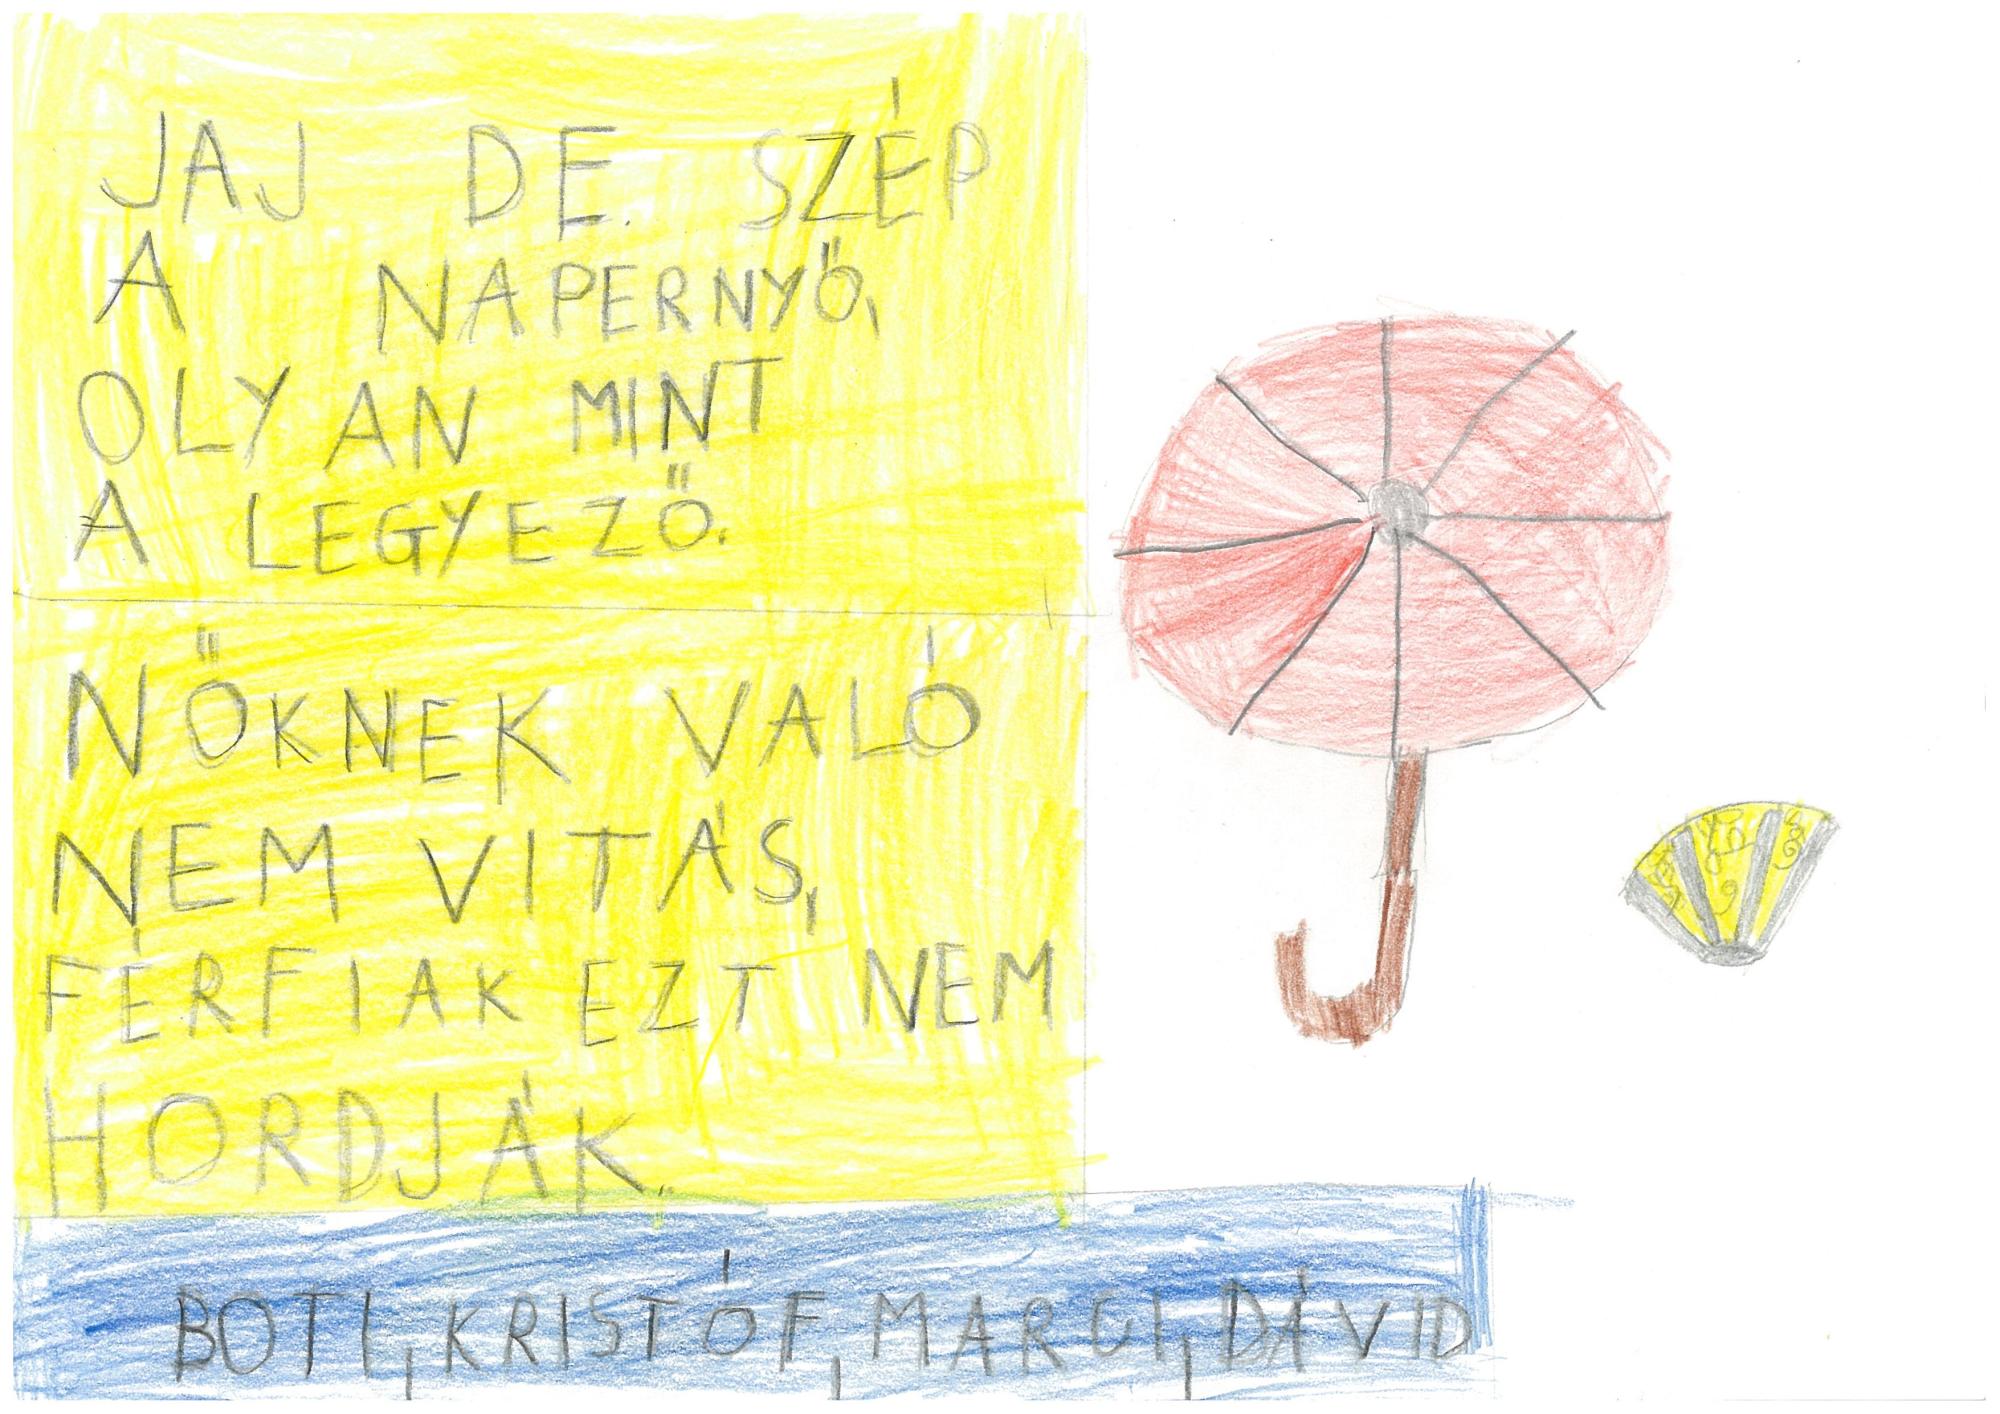 JAJ DE SZÉP
A NAPERNYŐ,
OLYAN MINT
A LEGYEZŐ.
NŐKNEK VALÓ
NEM VITÁS,
FÉRFIAK EZT NEM
HORDJÁK.
BOTI, KRISTÓF, MARCI, DÁVID